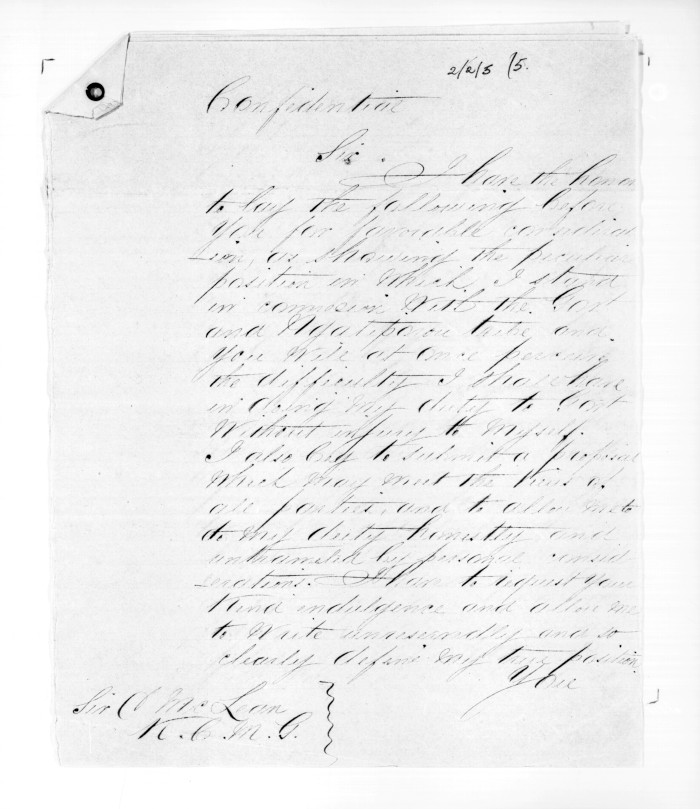 2/2/5 15.
Confidential
Sir. I have the honor
to lay the following before
you for favorable considerat
-ion, as showing the peculiar
position in which I stand
in connexion with the Govt
and Ngatiporou tribe and
you will at once perceive
the difficulty I shall have
in doing my duty to Govt
without injury to myself.
I also beg to submit a proposal
which may meet the views of
all parties, and to allow me to
do my duty honestly and
untrameled by personal consid
-erations. I have to request your
kind indulgence and allow me
to write unreservedly and so
clearly define my true position
You
Sir D McLean
K.C.M.G.